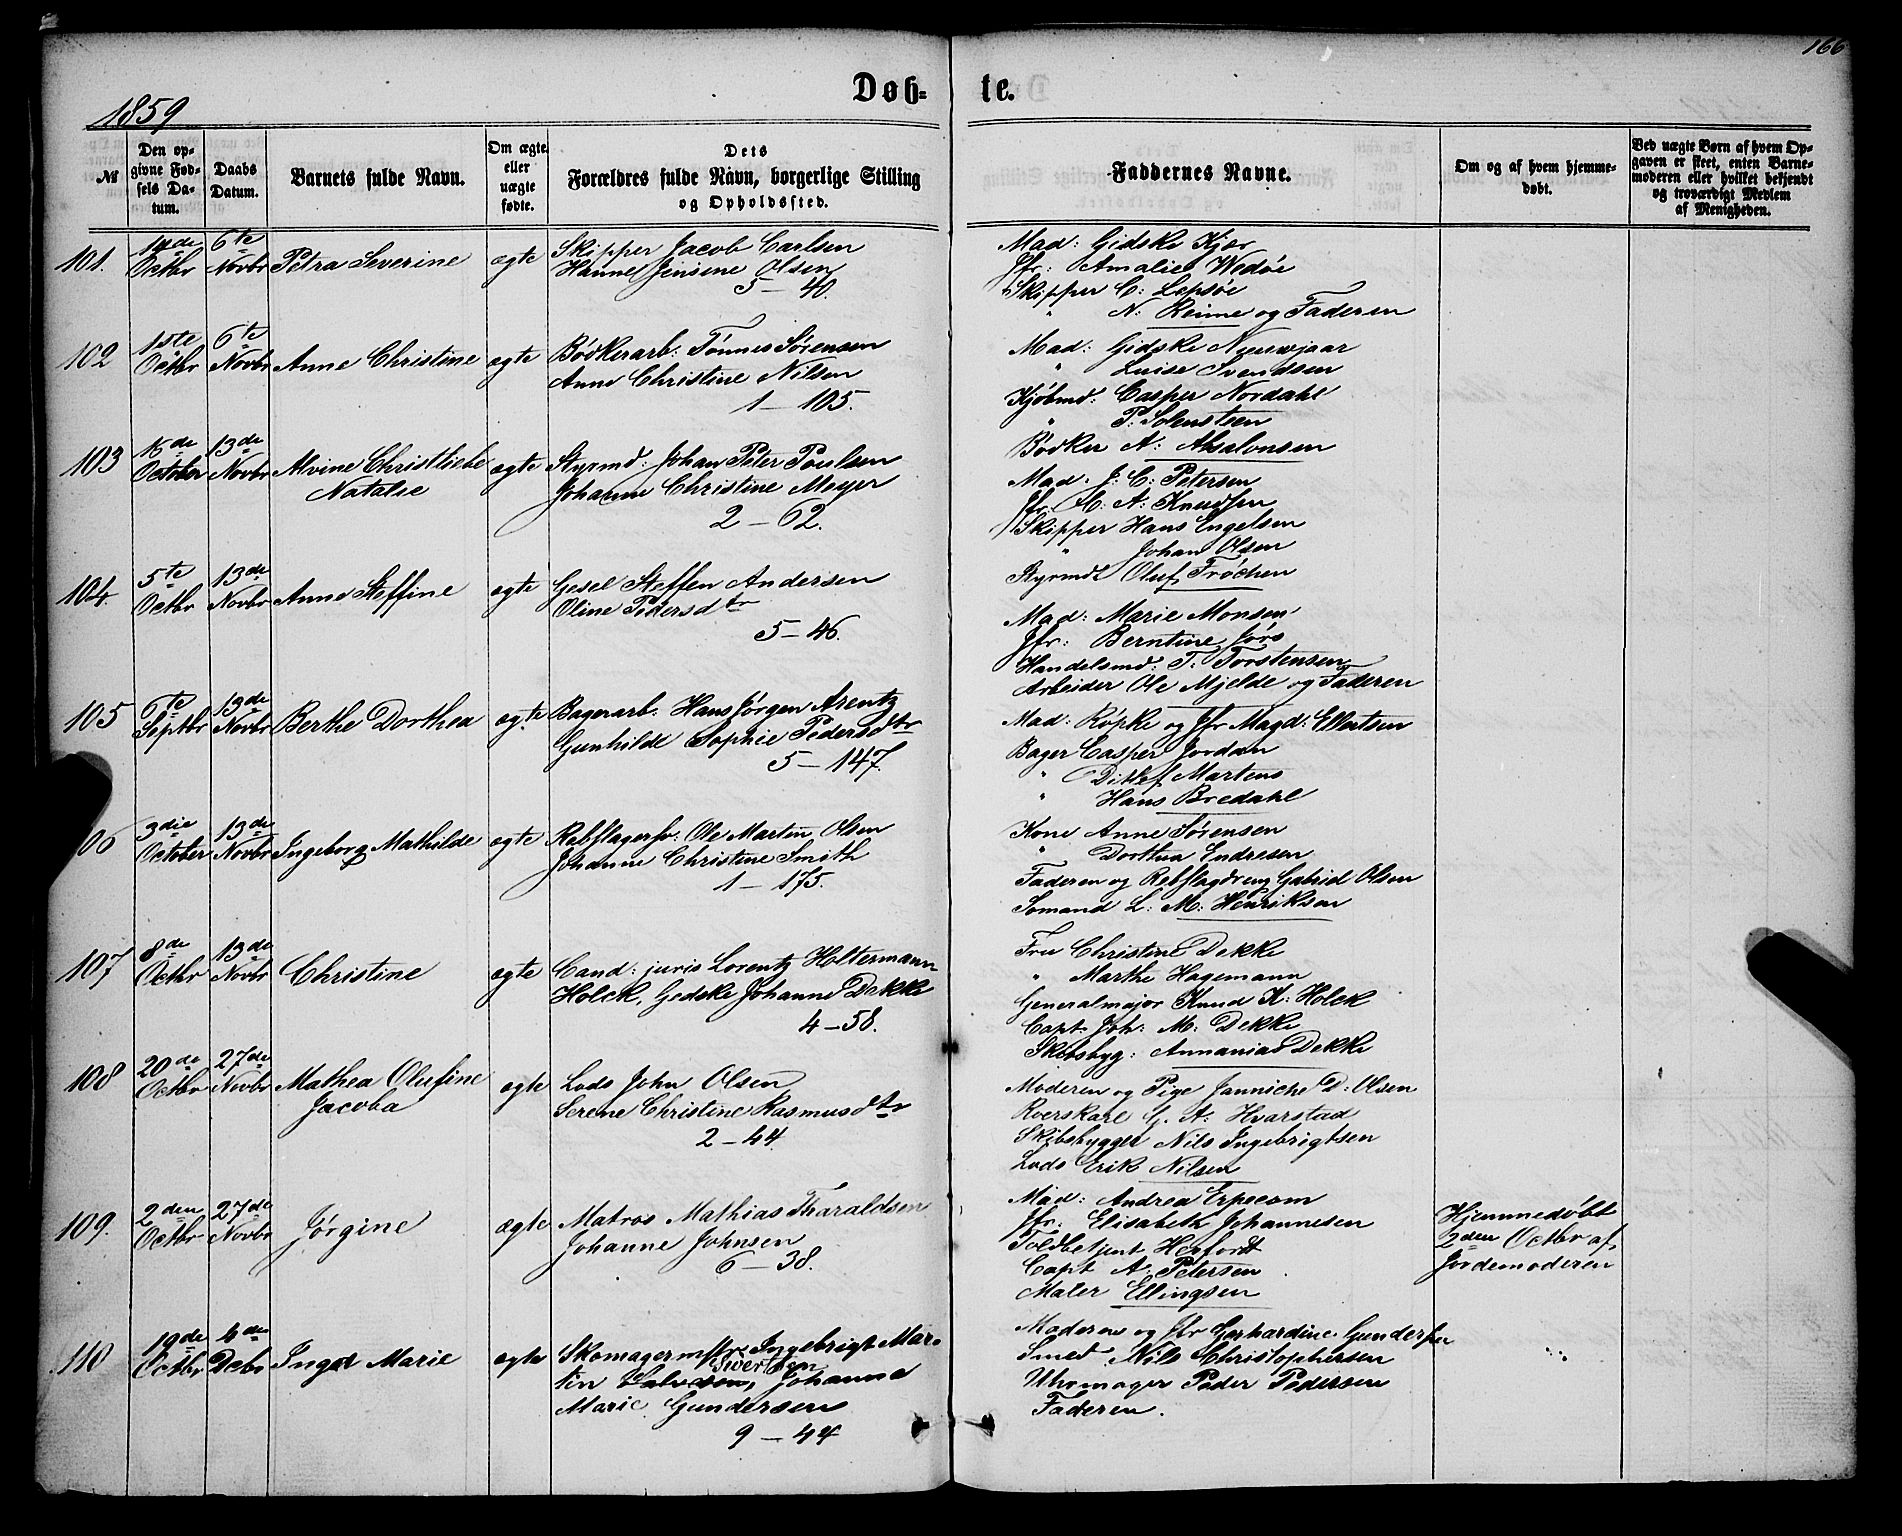 166
1859
Døb-te.
№
Den opgivne Fødsels Datum.
Daabs Datum.
Barnets fulde Navn.
Om ægte eller uægte fødte.
Dets Forældres fulde Navn, borgerlige Stilling og Opholdssted.
Faddernes Navne.
Om og af hvem hjemmedøbt.
Ved uægte Børn af hvem Opgaven er skeet, enten Barnemoderen eller hvilket bekjendt og troværdigt Medlem af Menigheden.
101. 14de Octbr 6te Novbr Petra Severine ægte Skipper Jacob Carlsen
Hanne Jensine Olsen
5 - 40.
Mad: Gidske Kjær
Jfr: Amalie Wedøe
Skipper C: Lepsøe
" N: Reime og Faderen
102 15te Octbr 6te Novbr Anne Christine ægte Bødkerarb: Tönnes Sörensen
Anne Christine Nilsen
1 - 105.
Mad: Gidske Nyewejaar
" Luise Svendsen
Kjöbmd: Casper Nordahl
" P: Solensteen
Bödker A: Absalonsen
103 16de October 13de Novbr Alvine Christliebe
Natalie
ægte Styrmd: Johan Peter Poulsen
Johanne Christine Meyer
2 - 62.
Mad. J: C: Petersen
Jfr. C. A: Knudsen
Skipper Hans Engelsen
" Johan Olsen
Styrmd Oluf Fröchen
104. 5te Octbr 13de Novbr Anne Steffine ægte Gesel Steffen Andersen
Oline Pedersdtr
5 - 46.
Mad: Marie Monsen
Jfr: Berntine Jörs
Handelsmd: T: Torstensen
Arbeider Ole Mjelde og Faderen
105 6te Septbr 13de Novbr Berthe Dorthea ægte Bagerarb: Hans Jörgen Arentz
Gunhilde Sophie Pedersdtr
5 - 147.
Mad: Röpke og Jfr Magd: Ellertsen
Bager Casper Jordan
" Ditlef Martens
" Hans Bredahl
06 3die October 13de Novbr Ingeborg Mathilde ægte Rebslagersv: Ole Martin Olsen
Johanne Christine Smith
1 - 175.
Kone Anne Sörensen
" Dorthea Endresen
Faderen og Rebslagdreng Gabriel Olsen
Sömand L: M: Henriksen
107 8de Octbr 13de Novbr Christine ægte Cand: juris Lorentz Holtermann
Holck, Gedske Johanne Dekke
4 - 58.
Fru Christine Dekke
" Marthe Hagemann
Generalmajor Knud K: Holck
Capt: Joh: M: Dekke
Skibsbyg: Annanias Dekke
108 20de Octbr 27de Novbr Mathea Olufine
Jacoba
ægte Lods John Olsen
Serene Christine Rasmusdtr
2 - 44.
Moderen og Pige Janniche D: Olsen
Roerskarl G. A: Hvarstad
Skibsbygger Nils Ingebrigtsen
Lods Erik Nilsen
109. 2den Octbr 27de Novbr Jörgine ægte Matros Mathias Tharaldsen
Johanne Johnsen
6 - 38.
Mad: Andrea Erpecom
Jfr: Elisabeth Johannesen
Toldbetjent Herfordt
Capt A: Petersen
Maler Ellingsen
Hjemmedöbt
2den Octbr af
Jordemoderen
110 19de Octbr 4de Decbr Inger Marie ægte Skomagermstr Ingebrigt Mar-
tin Sivertsen, Johanne
Marie Gundersen
9 - 44
Moderen og Jfr Gerhardine Gundersen
Smed Nils Christophersen
Uhrmager Peder Pedersen
Faderen.